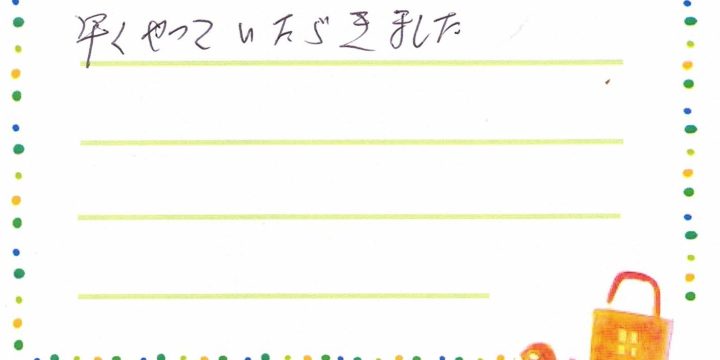 早くやっていただきました